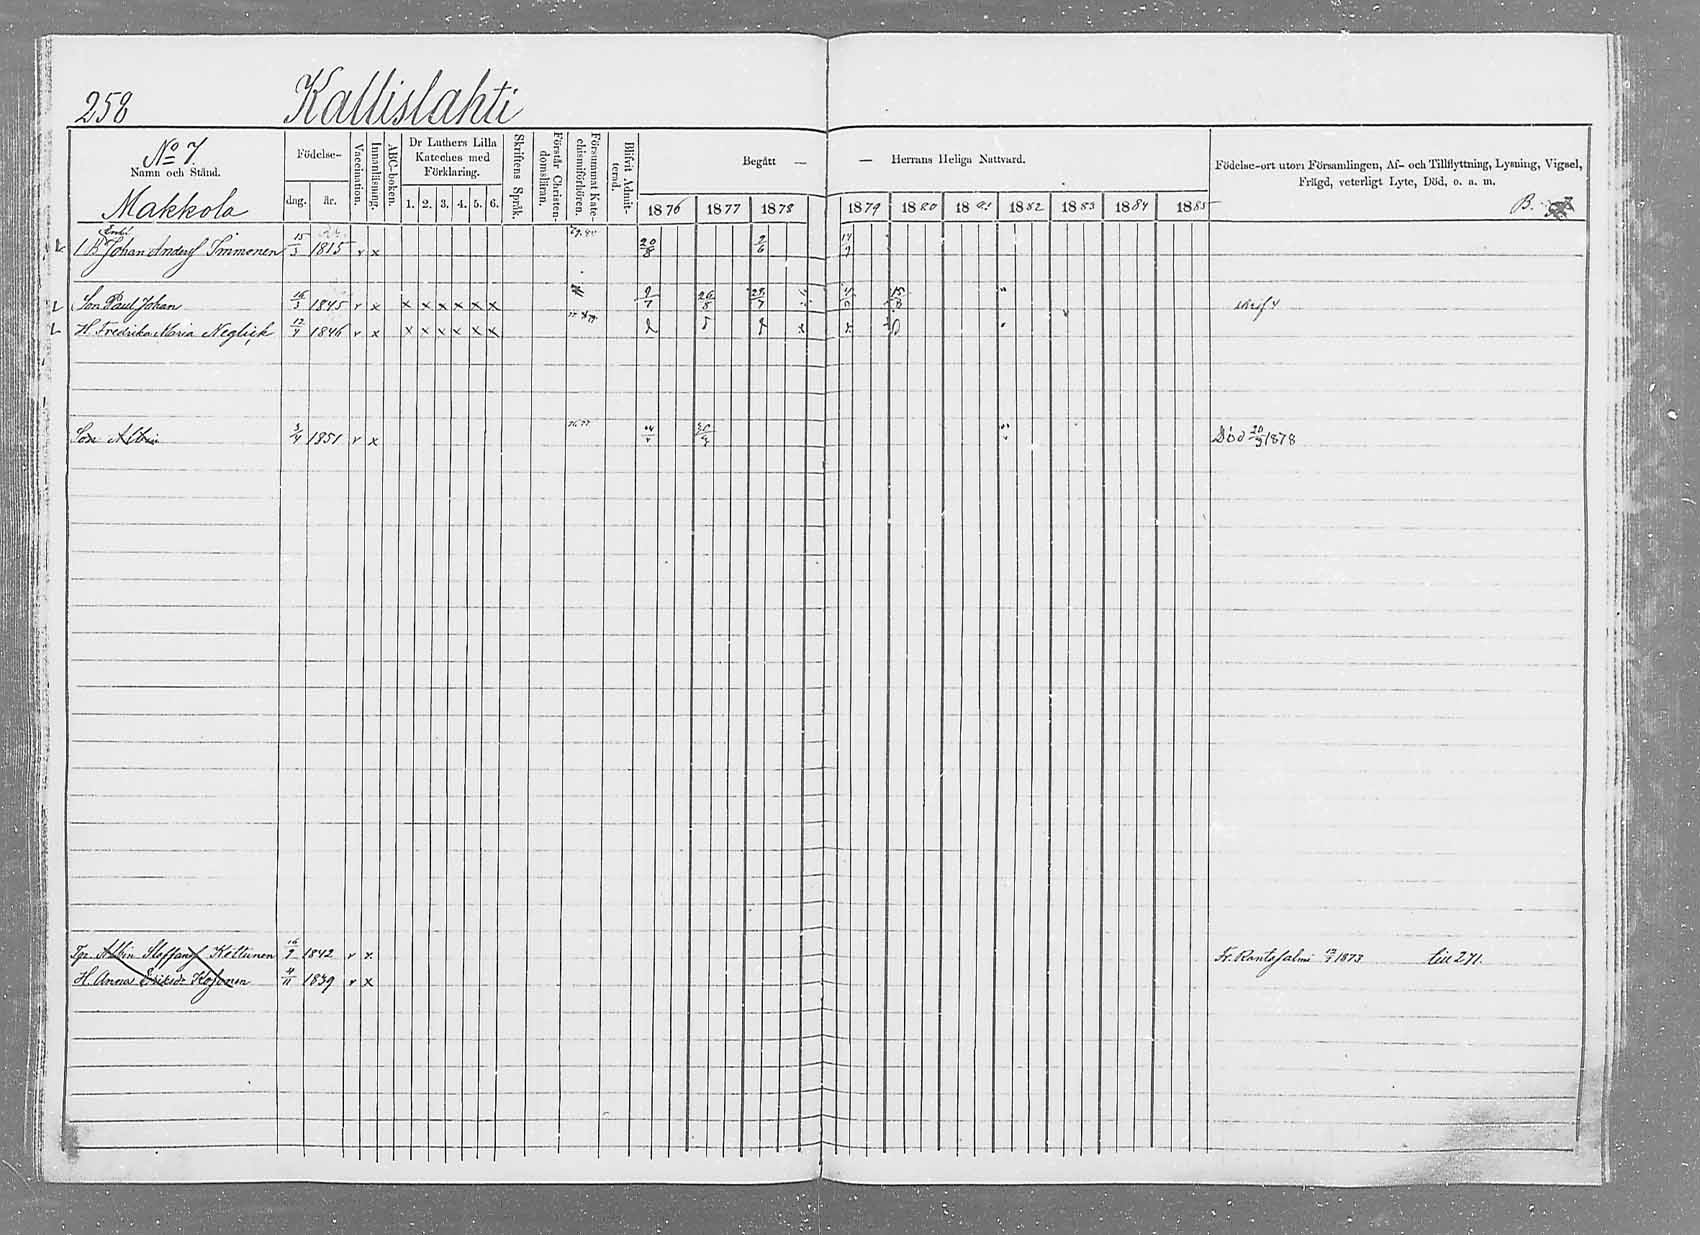 258 Kallislahti
No 7.
Namn och Stånd.
Makkola
Födelse-
dag. år.
Vaccination.
Innanläsning.
ABC-boken.
Dr Luthers Lilla
Kateches med
Förklaring.
1. 2. 3. 4. 5. 6.
Skriftens Språk.
Förstår Christen-
domsläran.
Försummat Kate-
chismiförhören.
Blifvit Admit-
terad.
Begått —
1876 1877 1878
— Herrans Heliga Nattvard.
1879 1880 1881 1882 1883 1884 1885
Födelse-ort utom Församlingen, Af- och Tillflyttning, Lysning, Vigsel,
Frägd, veterligt Lyte, Död, o. a. m.
B.
Johan Anderss Immonen 15/3 1815 v x 20/8 2/6
Son Paul Johan 16/3 1845 v x x x x x x x 26/8
H. Fredrika Maria Neglick 12/9 1846 v x x x x x x x
Son Albin 3/4 1851 v x Död 20/3 1878
Albin Staffanss Keltunen 16/9 1842 v x. Fr. Rantasalmi 1873 271.
H. Anna Eriksdr Kosonen 4/11 1839 v x